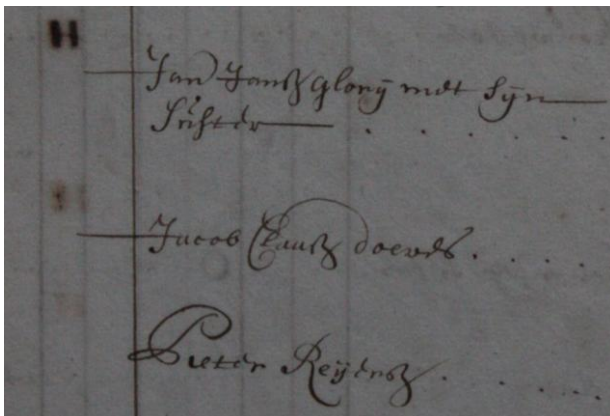 H
Jan Jansz glorij met sijn
suster
Jacob Claasz doedes.
Pieter Reijersz.